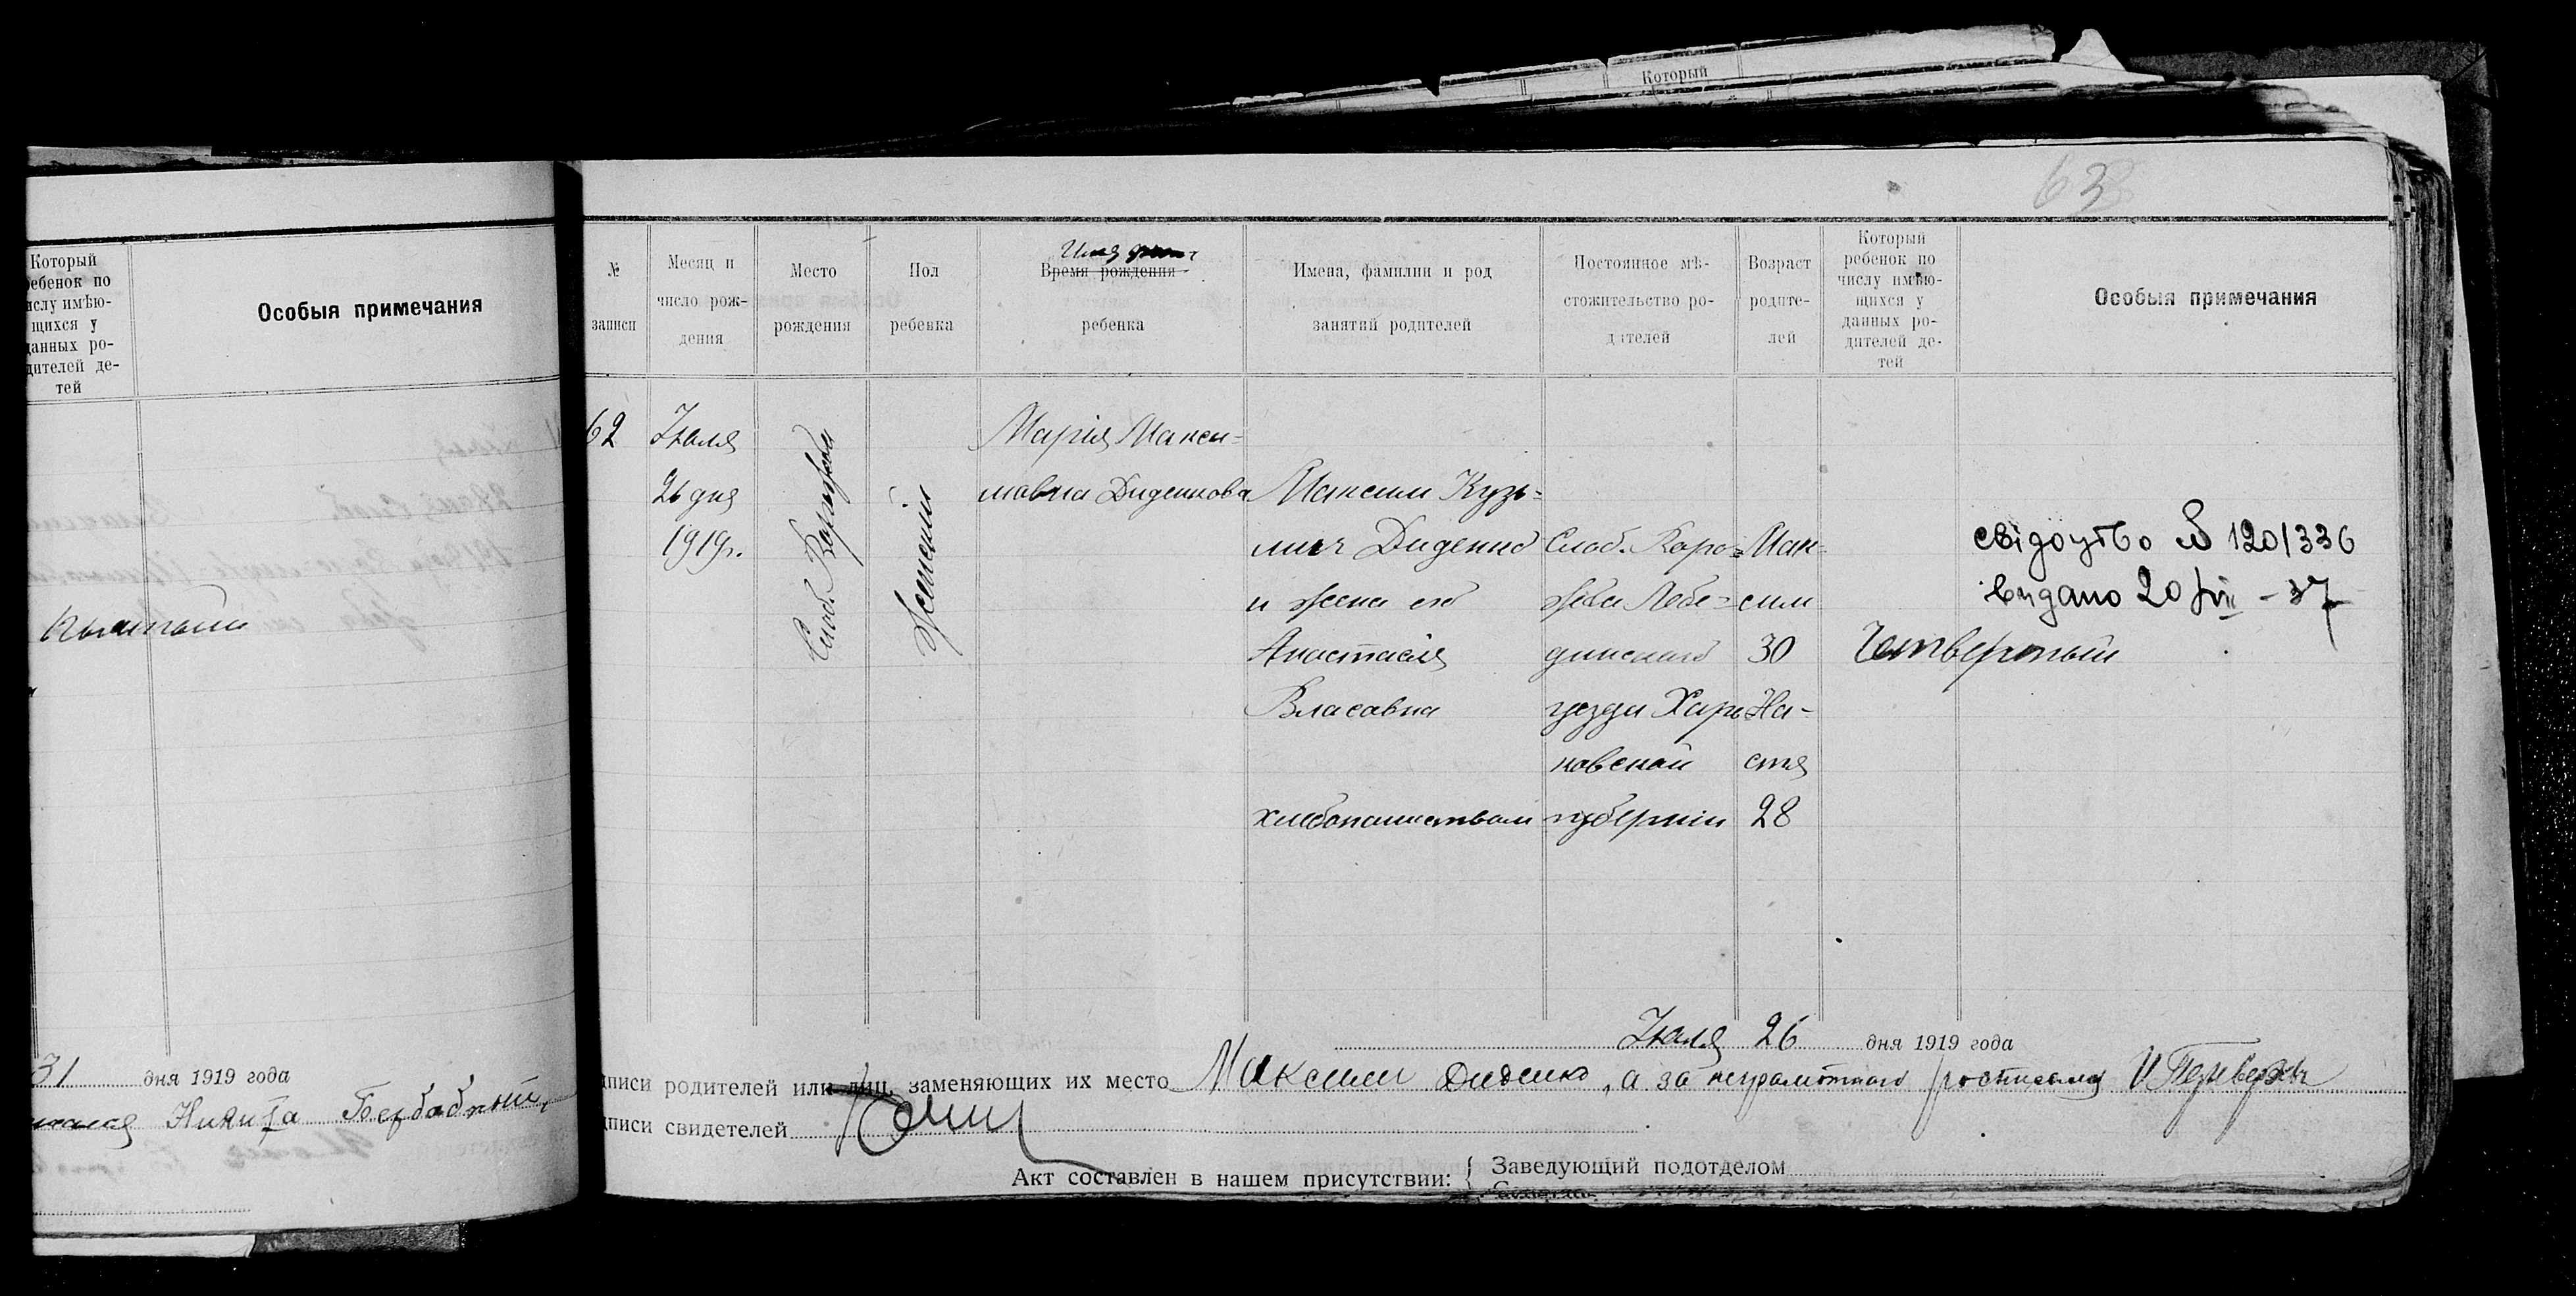 Который
63
Который
ребенок по
числу имѣю-
щихся у
данных ро-
дителей де-
тей
Особыя примечания
31 дня 1919 года
Никита Безбабный
№
записи
Месяц и
число рож-
дения
Место
рождения
Пол
ребенка
Имя
Время рождения
ребенка
Имена, фамилии и род
занятий родителей
Постоянное мѣ-
стожительство ро-
дителей
Возраст
родите-
лей
Который
ребенок по
числу имѣю-
щихся у
данных ро-
дителей де-
тей
Особыя примечания
62
Июля
26 дня
1919 г.
Слоб.
Женский
Марія Макси-
мовна Диденкова
Максим Кузь-
мич Диденко
и жена его
Анастасія
Власовна
хлебопашеством
Слоб. Каро-
жба Лебе-
динскаго
уезда Харь
ковской
губерніи
Мак-
сим
30
На-
стя
28
Четвертый
свідоцтво № 120/336
видано 20/VII - 37
Июля 26 дня 1919 года
дписи родителей или лиц, заменяющих их место Максим Диденко, а за неграмотнаго
дписи свидетелей
Акт составлен в нашем присутствии: { Заведующий подотделом